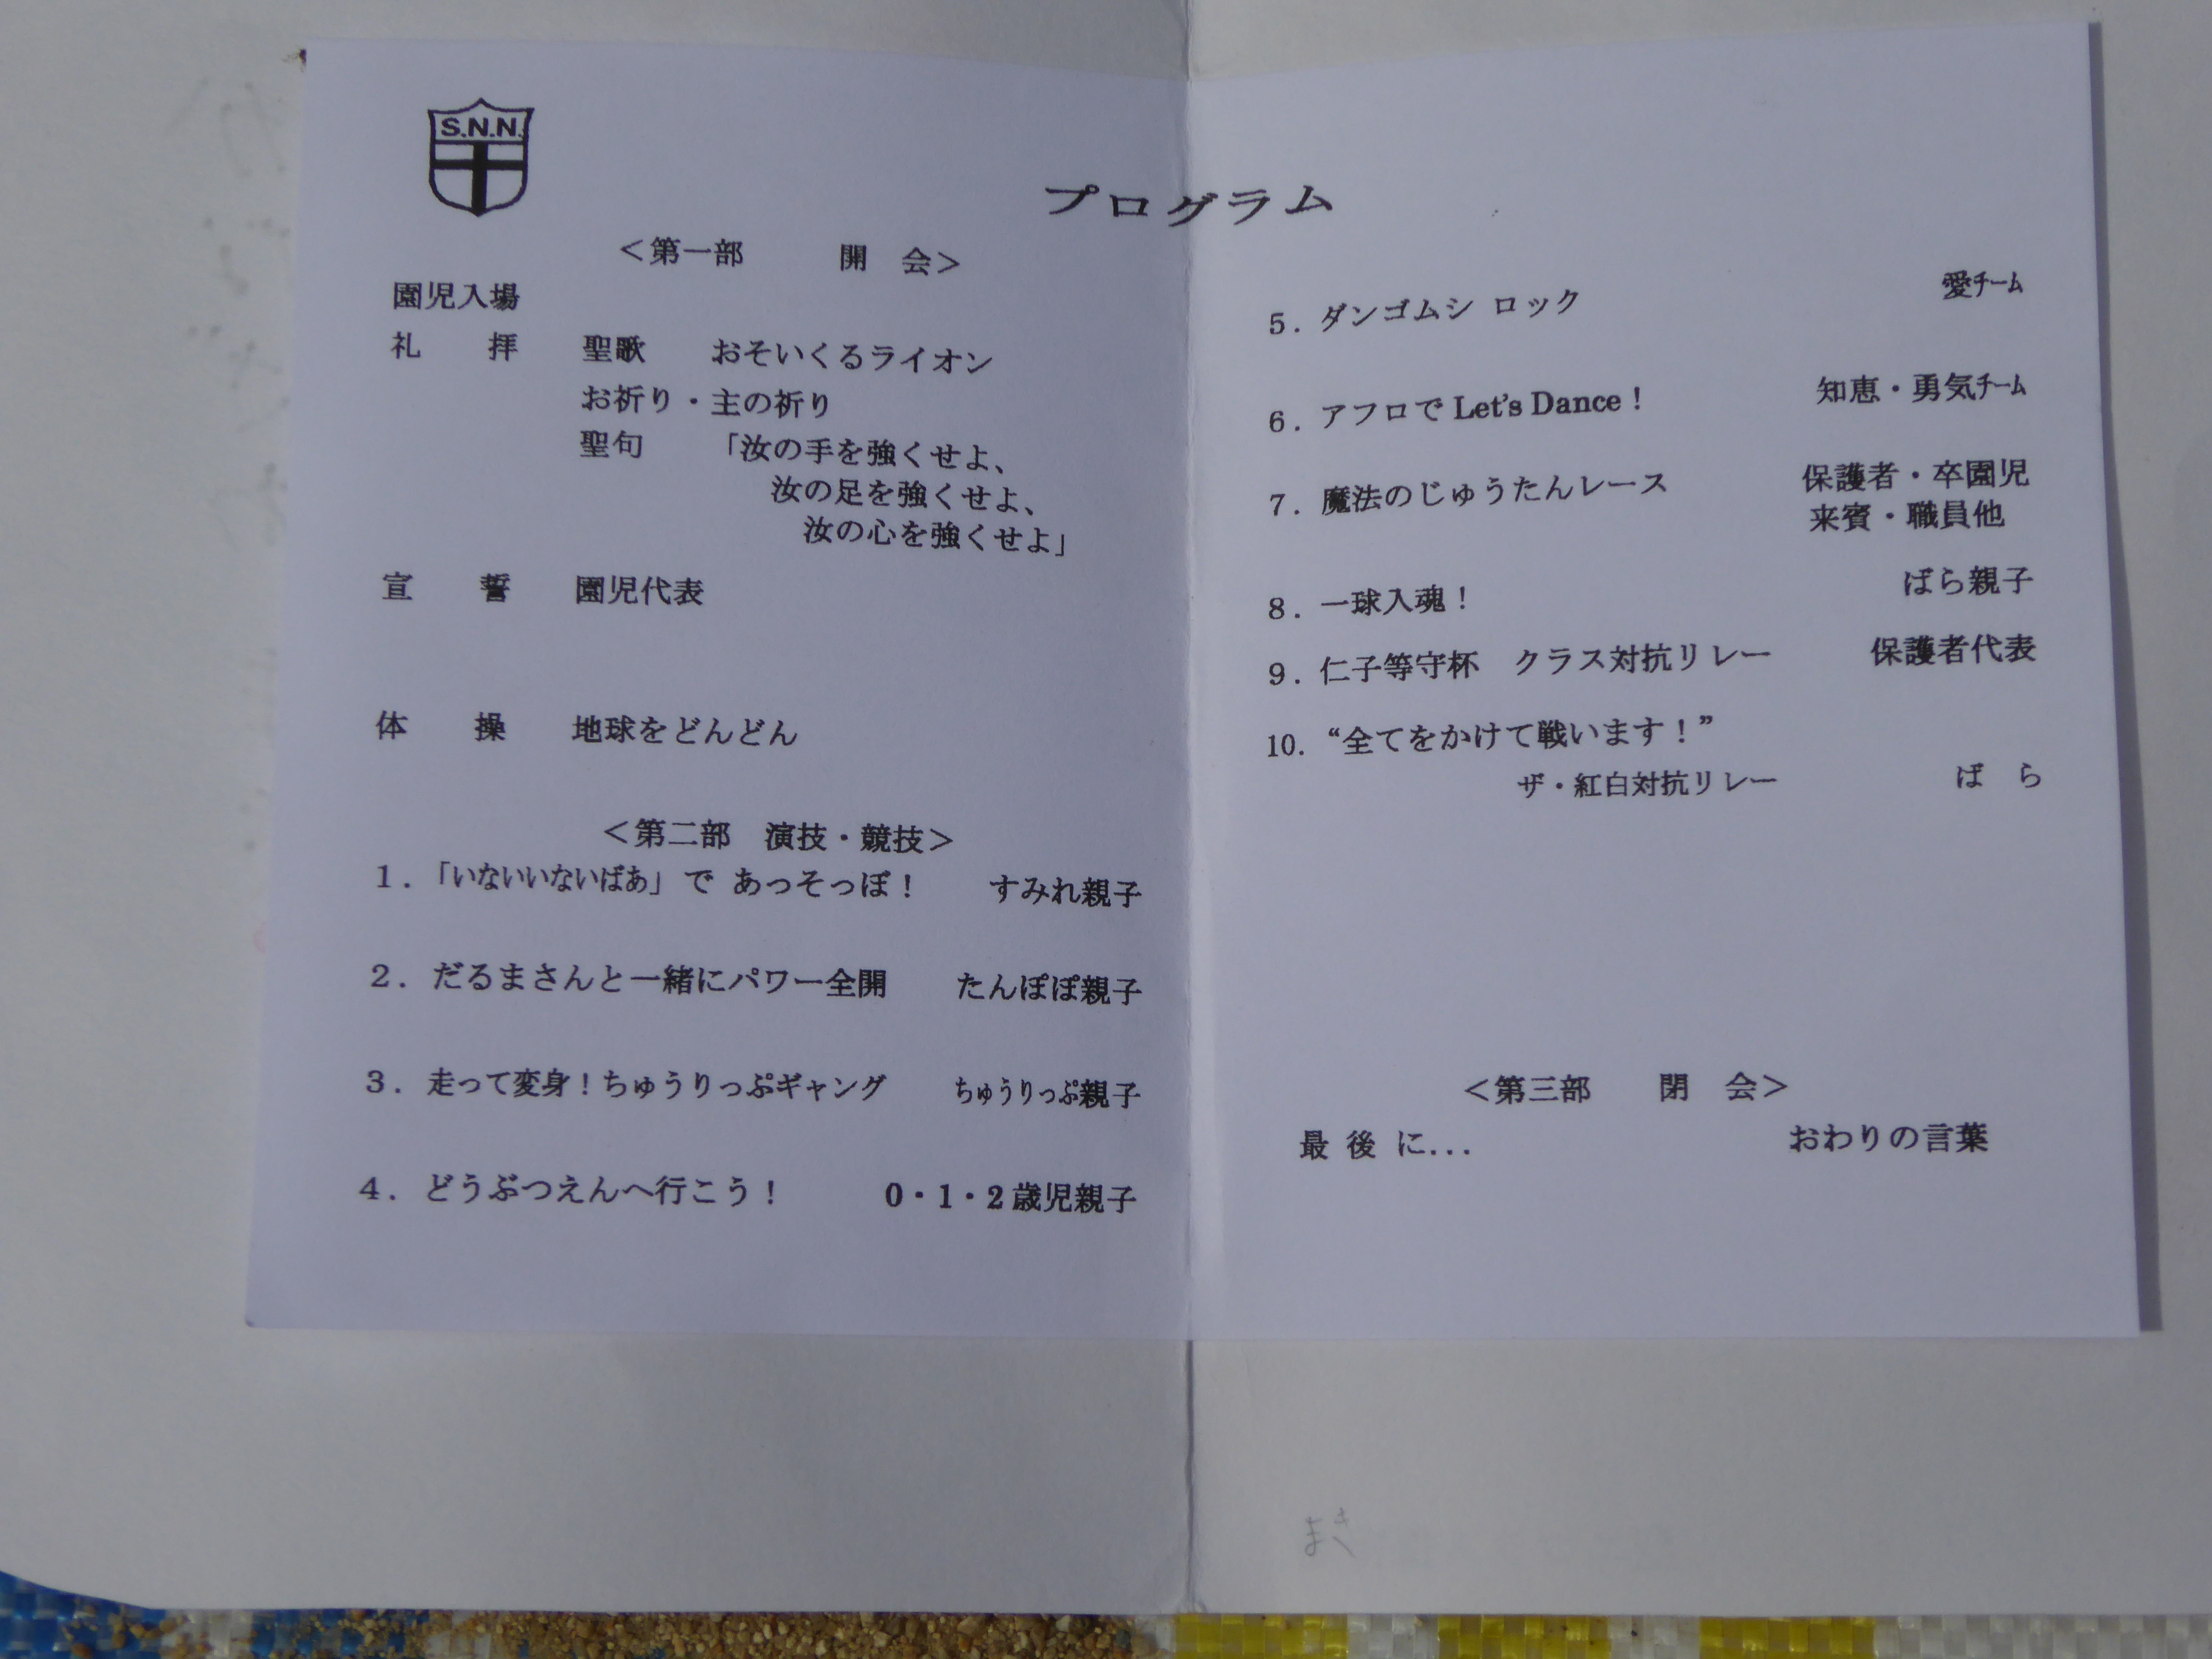 S.N.N.
プログラム
＜第一部　開　会＞
園児入場
礼　拝　聖歌　おそいくるライオン
お祈り・主の祈り
聖句　「汝の手を強くせよ、
汝の足を強くせよ、
汝の心を強くせよ」
宣　誓　園児代表
体　操　地球をどんどん
＜第二部　演技・競技＞
１．「いないいないばあ」で あっそっぽ！　すみれ親子
２．だるまさんと一緒にパワー全開　たんぽぽ親子
３．走って変身！ちゅうりっぷギャング　ちゅうりっぷ親子
４．どうぶつえんへ行こう！　0・1・2歳児親子
5．ダンゴムシ ロック　愛チーム
6．アフロで Let's Dance！　知恵・勇気チーム
7．魔法のじゅうたんレース　保護者・卒園児
来賓・職員他
8．一球入魂！　ばら親子
9．仁子等守杯　クラス対抗リレー　保護者代表
10．“全てをかけて戦います！”
ザ・紅白対抗リレー　ば　ら
＜第三部　閉　会＞
最 後 に...　おわりの言葉
まき